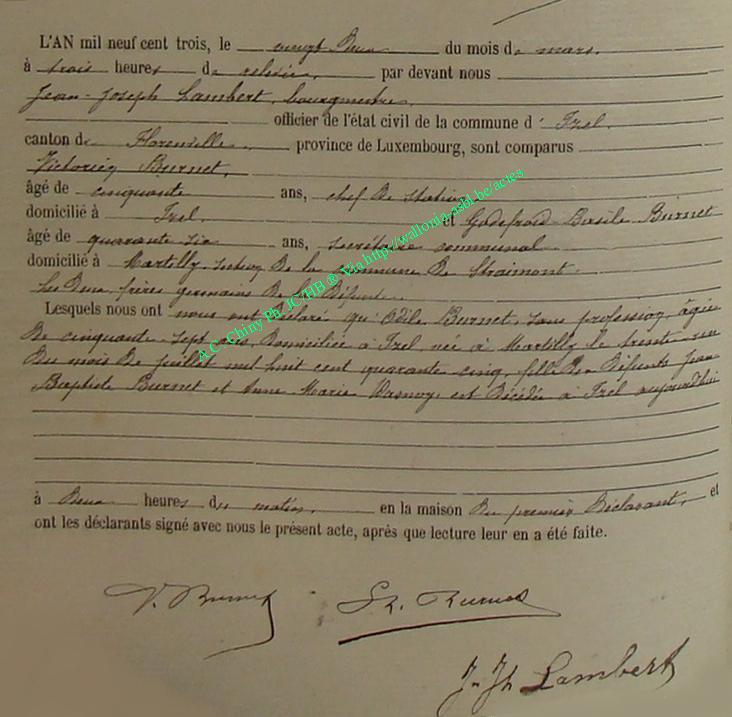 L'AN mil neuf cent trois, le vingt deux du mois de mars.
à trois heures de relevée, par devant nous
Jean-Joseph Lambert, bourgmestre,
officier de l'état civil de la commune d'Izel.
canton de Florenville, province de Luxembourg, sont comparus
Victorien Burnet,
âgé de cinquante ans, chef de station
domicilié à Izel. et Godefroid Basile Burnet
âgé de quarante six ans, secrétaire communal
domicilié à Martilly, section de la commune de Straimont.
Les deux frères germains de la défunte.
Lesquels nous ont nous ont déclaré qu'Odile Burnet, sans profession, âgée
de cinquante-sept ans, domiciliée à Izel née à Martilly le trente-un
du mois de juillet mil huit cent quarante cinq, fille des défunts Jean
Baptiste Burnet et Anne Marie est décédée à Izel aujourd'hui
à deux heures du matin, en la maison du premier déclarant, et
ont les déclarants signé avec nous le présent acte, après que lecture leur en a été faite.
V. Burnet
Burnet
J. Jh Lambert
A.C. Chiny Ph JC/HB @ Via http://wallonia-asbl.be/actes